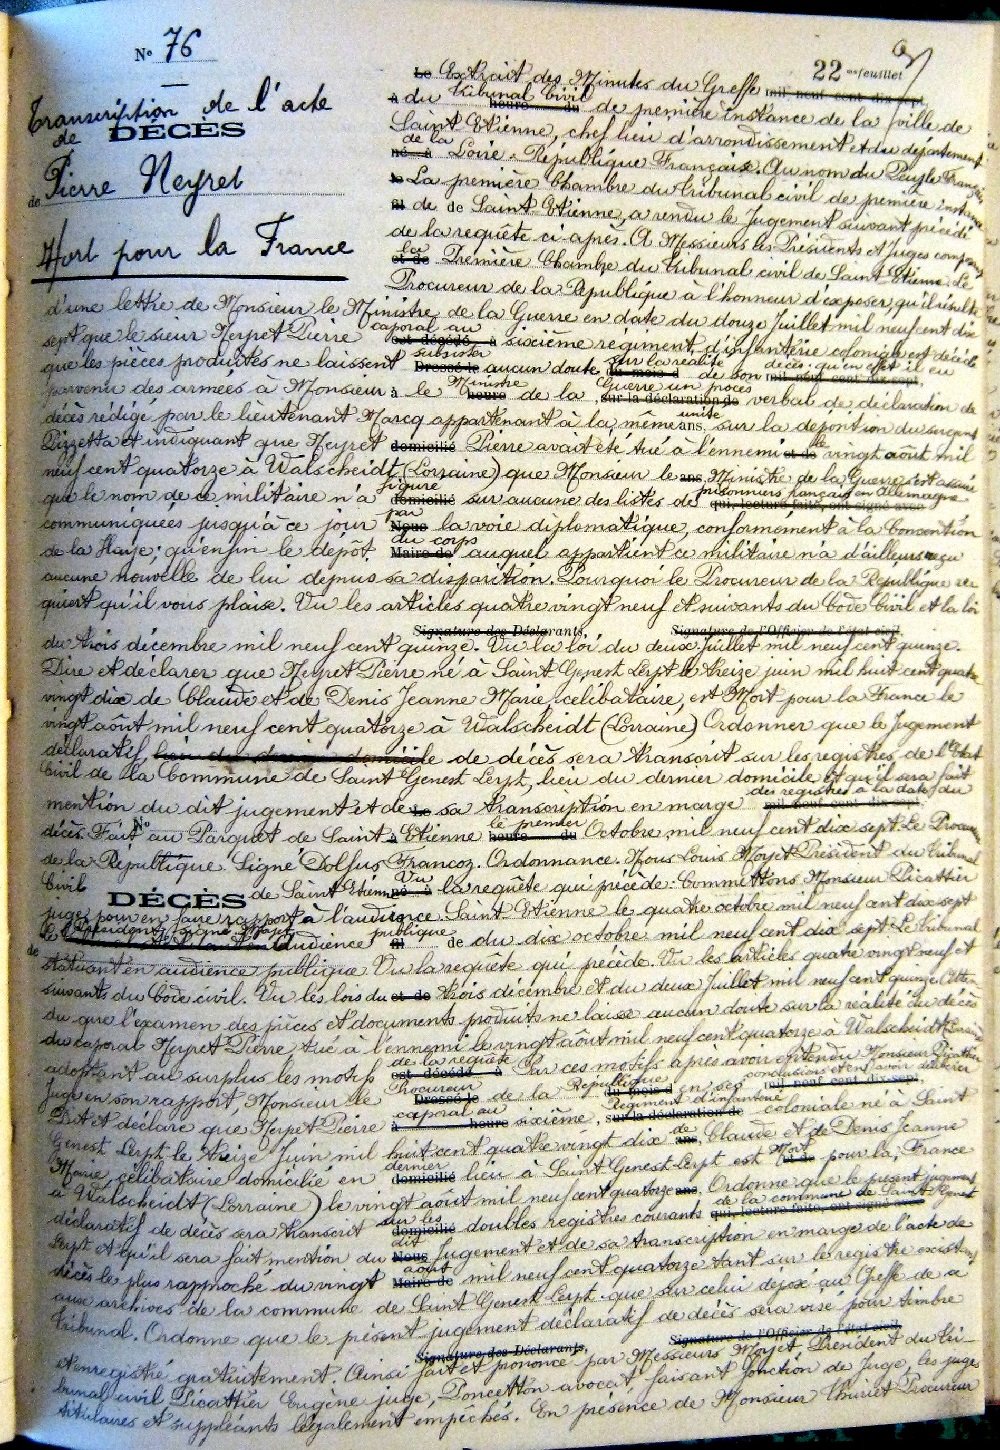 N° 76
22me feuillet
Transcription de l'acte
de DÉCÈS
de Pierre Neyret
Mort pour la France
Le Extrait des Minutes du Greffe mil neuf cent dix-sept
à du tribunal Civil heure du de première instance de la ville de
Saint Etienne, chef lieu d'arrondissement et du département
né à de la Loire - République Française. Au nom du Peuple Français
le La première Chambre du tribunal civil de première instance
fil de de Saint Etienne, a rendu le Jugement suivant précédé
de la requête ci-après. A Messieurs les Présidents et Juges composant
et de la Première Chambre du tribunal civil de Saint Etienne. Le
Procureur de la République à l'honneur d'exposer, qu'il résulte
d'une lettre de Monsieur le Ministre de la Guerre en date du douze Juillet mil neuf cent dix
sept que le sieur Neyret Pierre est décédé à caporal au sixième régiment d'infanterie coloniale est décédé
que les pièces produites ne laissent Dressé le subsister aucun doute du mois d sur la réalité de son décès ; qu'en effet il est mil neuf cent dix-sept,
parvenu des armées à Monsieur à le heure Ministre de la sur la déclaration de Guerre un procès verbal de déclaration de
décès rédigé par le lieutenant Marcq appartenant à la même ans, unité sur la déposition du sergent
Pizzetta et indiquant que Neyret domicilié Pierre avait été tué à l'ennemi et de le vingt août mil
neuf cent quatorze à Walscheidt (Lorraine) que Monsieur le ans, Ministre de la Guerre s'est assuré
que le nom de ce militaire n'a domicilié figuré sur aucune des listes de qui, lecture faite, ont signé avec prisonniers français en Allemagne
communiquées jusqu'à ce jour Nous par la voie diplomatique, conformément à la Convention
de la Haye ; qu'enfin le dépôt Maire de du corps auquel appartient ce militaire n'a d'ailleurs reçu
aucune nouvelle de lui depuis sa disparition. Pourquoi le Procureur de la République re
quiert qu'il vous plaise. Vu les articles quatre vingt neuf et suivants du Code Civil et la loi
Signature des Déclarants, Signature de l'Officier de l'état civil,
du trois décembre mil neuf cent quinze. Vu la loi du deux Juillet mil neuf cent quinze.
Dire et déclarer que Neyret Pierre né à Saint Genest Lerpt le treize juin mil huit cent quatre
vingt dix de Claude et de Denis Jeanne Marie, célibataire, est Mort pour la France le
vingt août mil neuf cent quatorze à Walscheidt (Lorraine) Ordonner que le Jugement
déclaratif de décès sera transcrit sur les registres de l'Etat
Civil de la Commune de Saint Genest Lerpt, lieu du dernier domicile et qu'il sera fait
mention du dit jugement et de Le sa transcription en marge mil neuf cent dix-sept des registres à la date du
décès. Fait N° au Parquet de Saint à Etienne heure du le premier Octobre mil neuf cent dix sept. Le Procureur
de la République. Signé Dolfus Francoz. Ordonnance. Nous Louis Moyet Président du tribunal
Civil DÉCÈS de Saint Etienne né à Vu la requête qui précède. Commettons Monsieur Picattier
juge, pour en faire rapport à l'audience. Saint Etienne le quatre octobre mil neuf cent dix sept
le Président, signé Moyet audience fil publique de du dix octobre mil neuf cent dix sept. Le tribunal
de
statuant en audience publique. Vu la requête qui précède. Vu les articles quatre vingt neuf et
suivants du Code civil. Vu les lois du et de trois décembre et du deux Juillet mil neuf cent quinze. Atten
du que l'examen des pièces et documents produits ne laisse aucun doute sur la réalité du décès
du caporal Neyret Pierre, tué à l'ennemi le vingt août mil neuf cent quatorze à Walscheidt (Lorraine)
adoptant au surplus les motifs est décédé à de la requête Par ces motifs après avoir entendu Monsieur Picattier
Juge en son rapport, Monsieur le Dressé le Procureur de la du mois d République, en ses mil neuf cent dix-sept, conclusions et en avoir délibéré
Dit et déclare que Neyret Pierre à heure caporal au sixième sur la déclaration de Régiment d'infanterie coloniale né à Saint
Genest Lerpt le treize Juin mil huit cent quatre vingt dix ans, de Claude et de Denis Jeanne
Marie, célibataire domicilié en domicilié dernier lieu à Saint Genest-Lerpt est et de Mort pour la France
à Walscheidt (Lorraine) le vingt août mil neuf cent quatorze ans, Ordonne que le présent jugement
déclaratif de décès sera transcrit domicilié sur les doubles registres courants qui, lecture faite, ont signé avec de la commune de Saint Genest
Lerpt et qu'il sera fait mention du Nous dit Jugement et de sa transcription en marge de l'acte de
décès le plus rapproché du vingt Maire de août mil neuf cent quatorze tant sur le registre existant
aux archives de la commune de Saint Genest Lerpt que sur celui déposé au Greffe de ce
tribunal. Ordonne que le présent jugement déclaratif de décès sera visé pour timbre
Signature des Déclarants, Signature de l'Officier de l'état civil,
et enregistré gratuitement. Ainsi fait et prononcé par Messieurs Moyet, Président du tri-
bunal civil Picattier Eugène juge, Poncetton avocat, faisant fonction de Juge, les juges
titulaires et suppléants légalement empêchés. En présence de Monsieur Thuriet Procureur